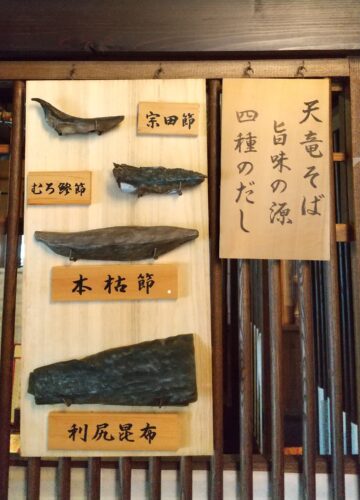 天竜そば
旨味の源
四種のだし
宗田節
むろ鯵節
本枯節
利尻昆布